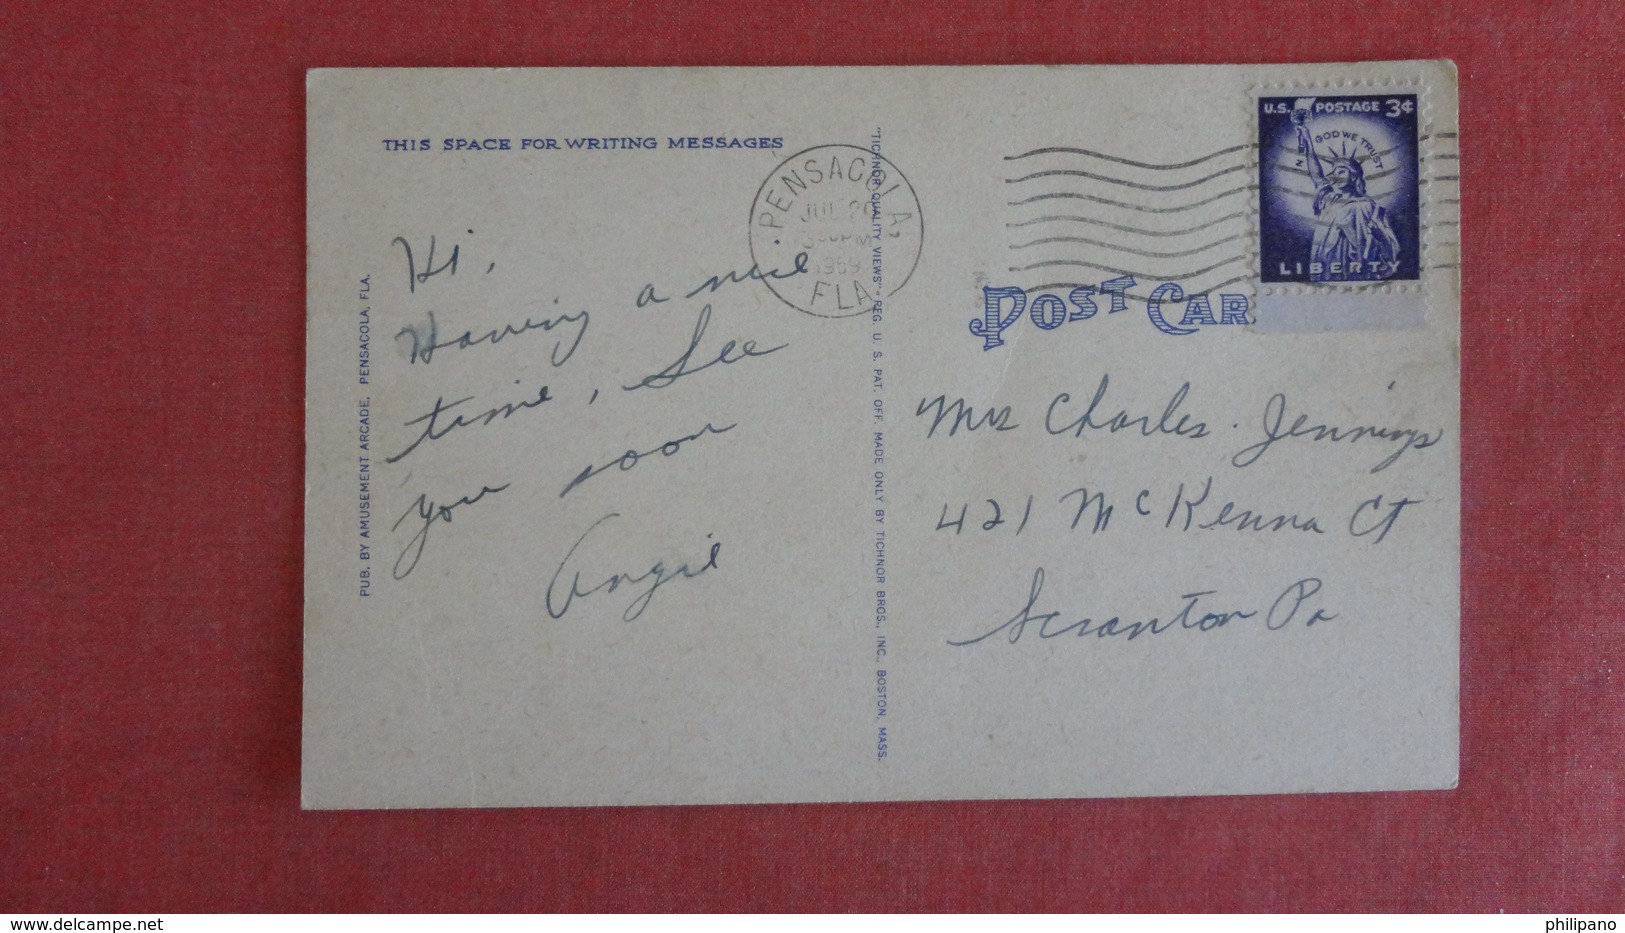 THIS SPACE FOR WRITING MESSAGES
Hi,
Having a nice
time, See
you soon
Angie
PUB. BY AMUSEMENT ARCADE, PENSACOLA, FLA.
"TICHNOR QUALITY VIEWS" REG. U. S. PAT. OFF. MADE ONLY BY TICHNOR BROS., INC., BOSTON, MASS.
PENSACOLA,
JUL
PM
1959
FLA
U.S. POSTAGE 3¢
IN GOD WE TRUST
LIBERTY
POST CAR
Mrs Charles Jennings
421 McKenna Ct
Scranton Pa
delcampe.net
philipano